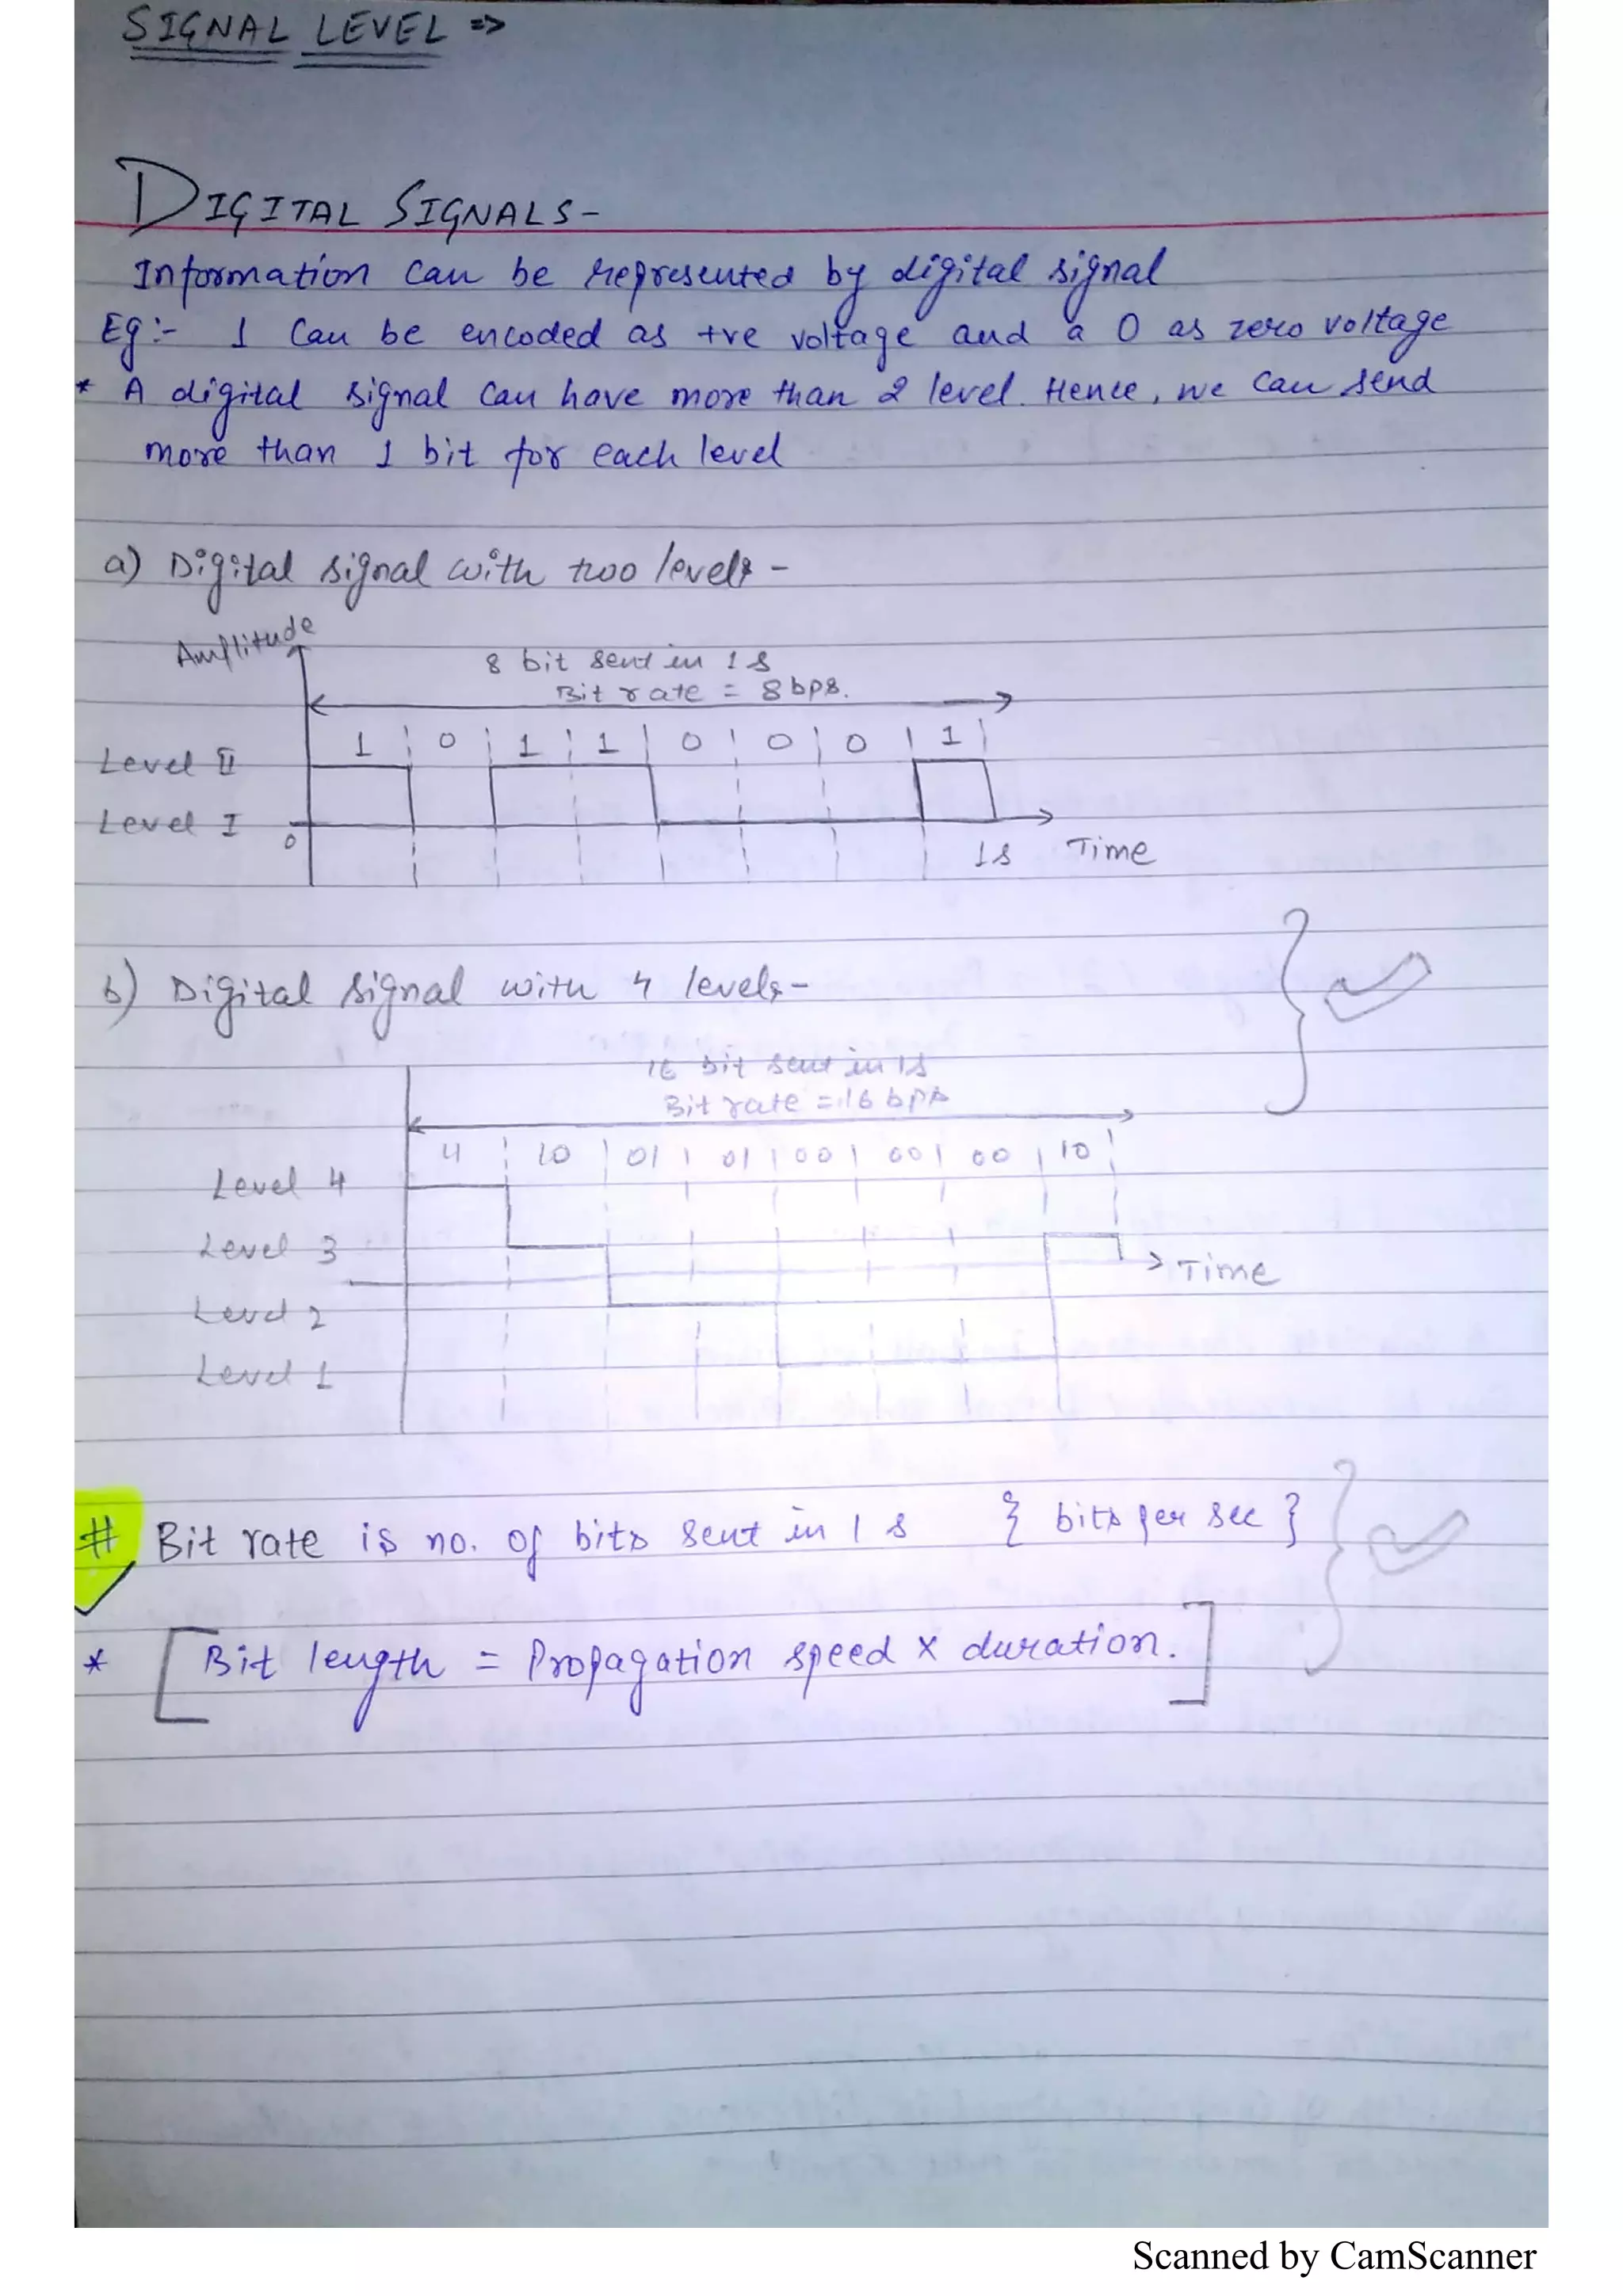 SIGNAL LEVEL =>
DIGITAL SIGNALS-
Information can be represented by digital signal
Eg:- 1 Can be encoded as +ve voltage and a 0 as zero voltage
* A digital signal can have more than 2 level. Hence, we can send
more than 1 bit for each level
a) Digital signal with two levels -
Amplitude
8 bit sent in 1s
Bit rate = 8bps.
1 0 1 1 0 0 0 1
Level II
Level I
0
1s Time
b) Digital signal with 4 levels-
16 bit sent in 1s
Bit rate = 16 bps
11 10 01 01 00 00 00 10
Level 4
Level 3
Time
Level 2
Level 1
# Bit rate is no. of bits sent in 1 s { bits per sec }
* [Bit length = Propagation speed x duration.]
Scanned by CamScanner